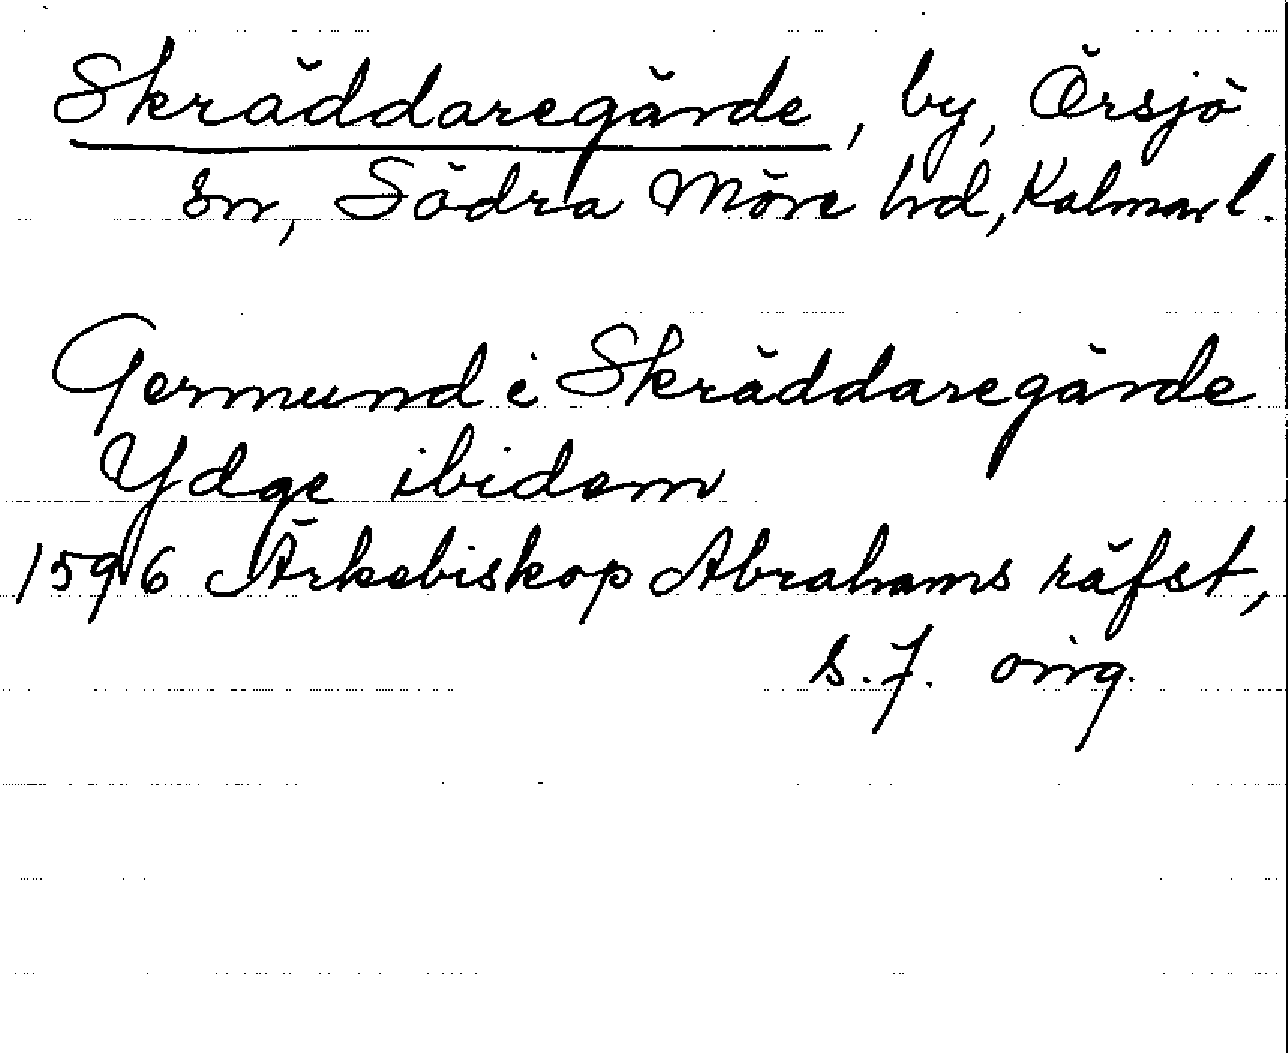 Skräddaregärde, by, Örsjö
sn, Södra Möre hd, Kalmar l.
Germund i Skräddaregärde
Ydge ibidem
1596 Ärkebiskop Abrahams räfst,
s. 7. orig.